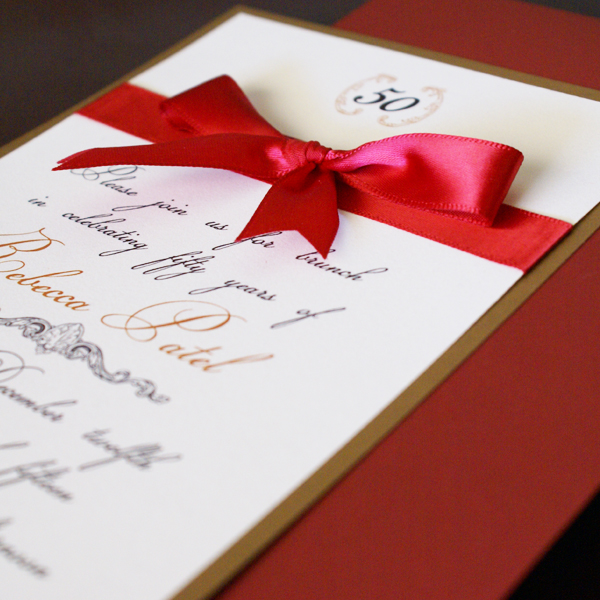 50
Please join us for brunch
in celebrating fifty years of
Rebecca Patel
December twelfth
fifteen